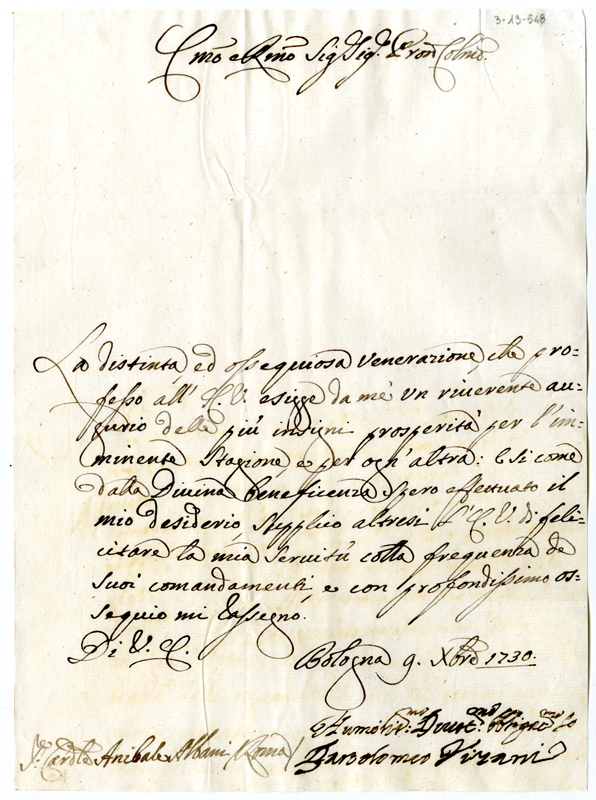 3-13-548
Emo e Rmo Sig.r Sig.r Pron Colmo.
La distinta, ed ossequiosa venerazione, che pro-
fesso all' E.V. esigge da me un riverente au-
gurio delle più insigni prosperità per l'im-
minente Stagione, e per ogn'altra: E si come
dalla Divina beneficenza spero effettuato il
mio desiderio, supplico altresì l'E.V. di feli-
citare la mia servitù colla frequenza de
suoi comandamenti, e con profondissimo os-
sequio mi rassegno.
Di V. E.
Bologna 9. Xbre 1730.
Humoliss.mo Divot.mo Obligat.mo
S.r Cardle Anibale Albani (Roma)
Bartolomeo Vizani